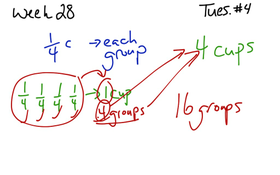 Week 28
Tues. #4
1/4 c → each group
4 cups
1/4 1/4 1/4 1/4 → 1 cup
4 groups
16 groups